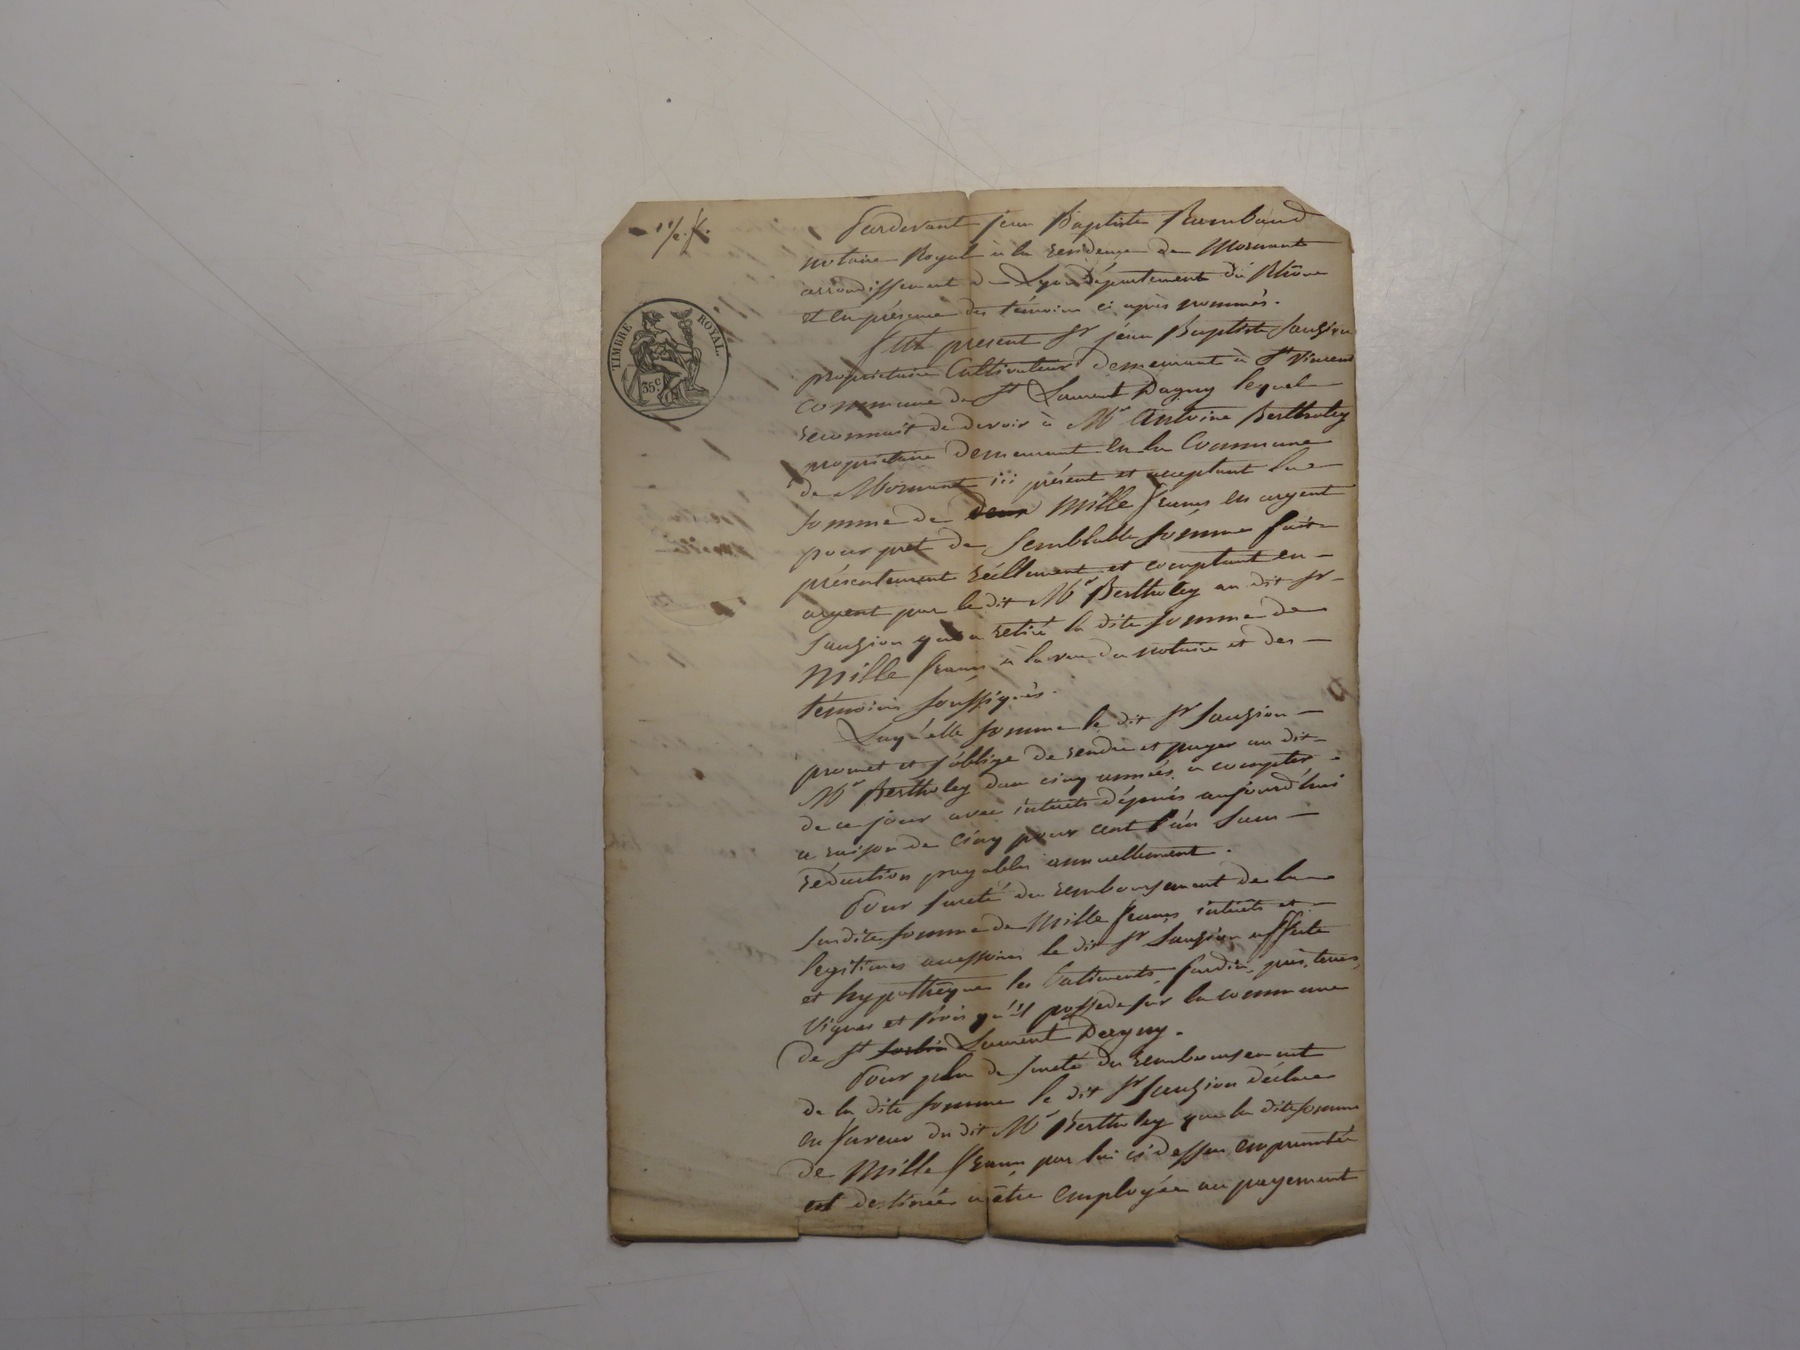 Pardevant jean Baptiste Rambaud
notaire Royal à la residence de Mornant
arrondissement de Lyon département du Rhône
et en présence des témoins ci après nommés.
TIMBRE ROYAL.
35 c
Fut present Sr jean Baptiste Sauzion
propriétaire Cultivateur demeurant à St Vincent
commune de St Laurent Dagny lequel
reconnait de devoir à Mr Antoine Bertholey
propriétaire demeurant en la Commune
de Mornant ici présent et acceptant la
somme de deux Mille francs en argent
pour pret de semblable somme fait
présentement réellement et comptant en
argent par le dit Mr Bertholey au dit Sr
Sauzion qui a retiré la dite somme de
Mille francs à la vue du notaire et des
témoins soussignés.
Laquelle somme le dit Sr Sauzion
promet et s'oblige de rendre et payer au dit
Mr Bertholey dans cinq années à compter
de ce jour avec intérets dépuis aujourd'hui
a raison de cinq pour cent l'an sans
réduction payables annuellement.
Pour sureté du remboursement de la
susdite somme de Mille francs intérets et
legitimes accessoires le dit Sr Sauzion affecte
et hypothèque les batiments, jardin, près, terres,
vignes et bois qu'il possede sur la commune
de St Sorlin Laurent Dagny.
Pour plus de sureté du remboursement
de la dite somme le dit Sr Sauzion déclare
en faveur du dit Mr Bertholey que la dite somme
de Mille francs par lui ci dessus empruntée
est destinée a être employée au payement